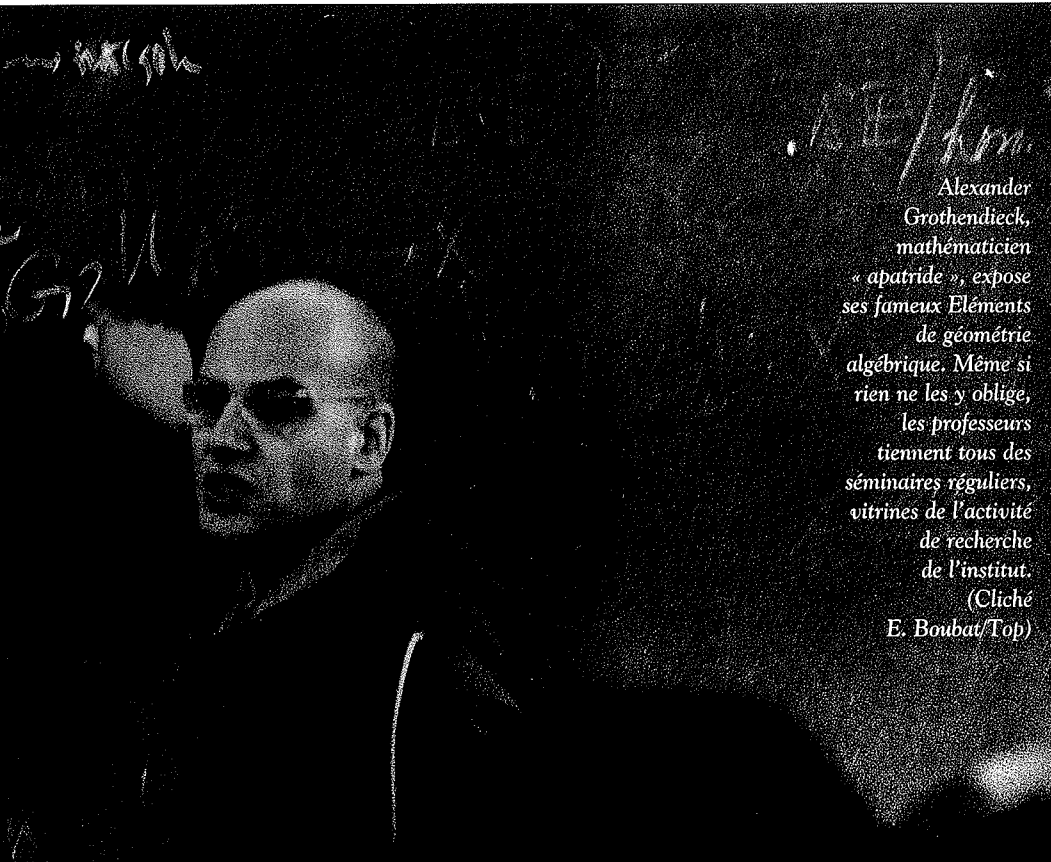 Alexander
Grothendieck,
mathématicien
« apatride », expose
ses fameux Eléments
de géométrie
algébrique. Même si
rien ne les y oblige,
les professeurs
tiennent tous des
séminaires réguliers,
vitrines de l'activité
de recherche
de l'institut.
(Cliché
E. Boubat/Top)